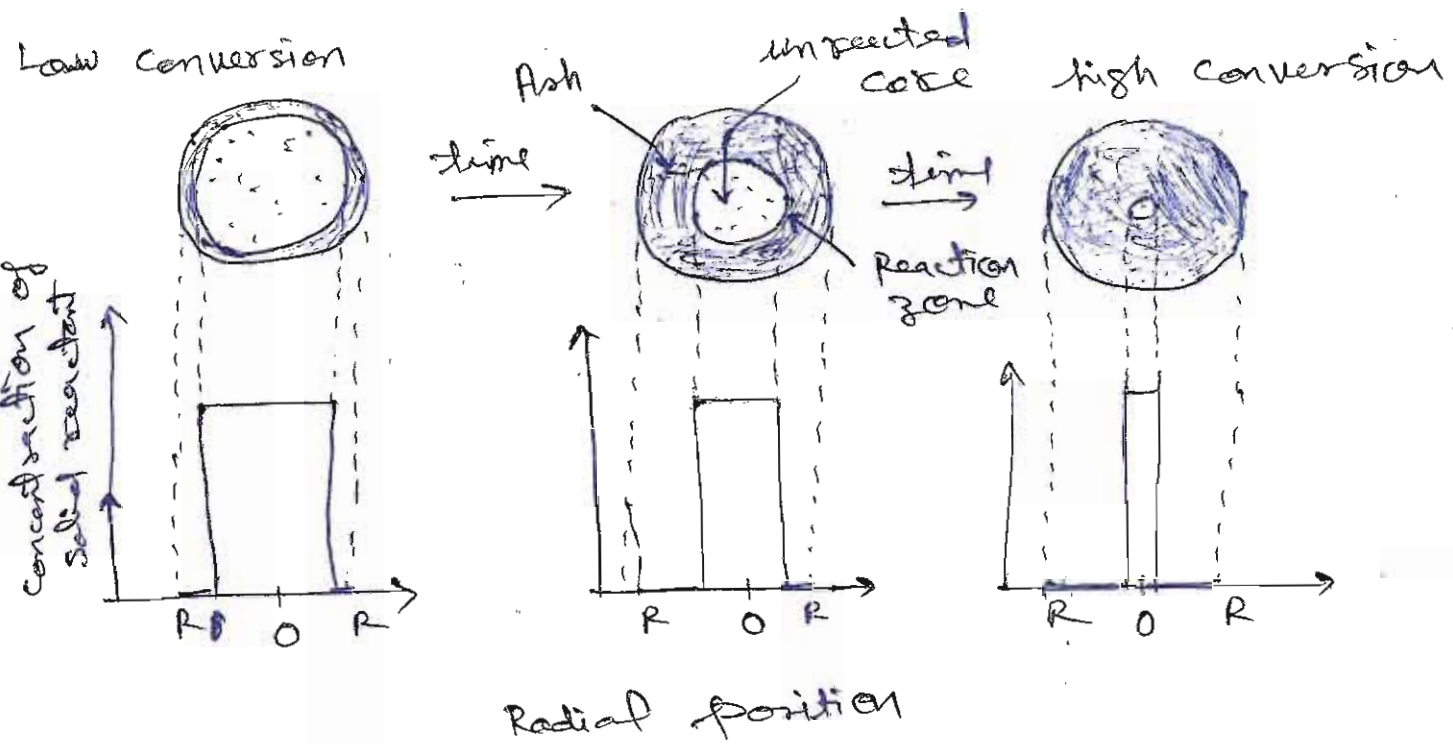 Low conversion
Ash
unreacted
core
high conversion
time
time
Reaction
zone
concentration of
solid reactant
R
O
R
R
O
R
R
O
R
Radial position